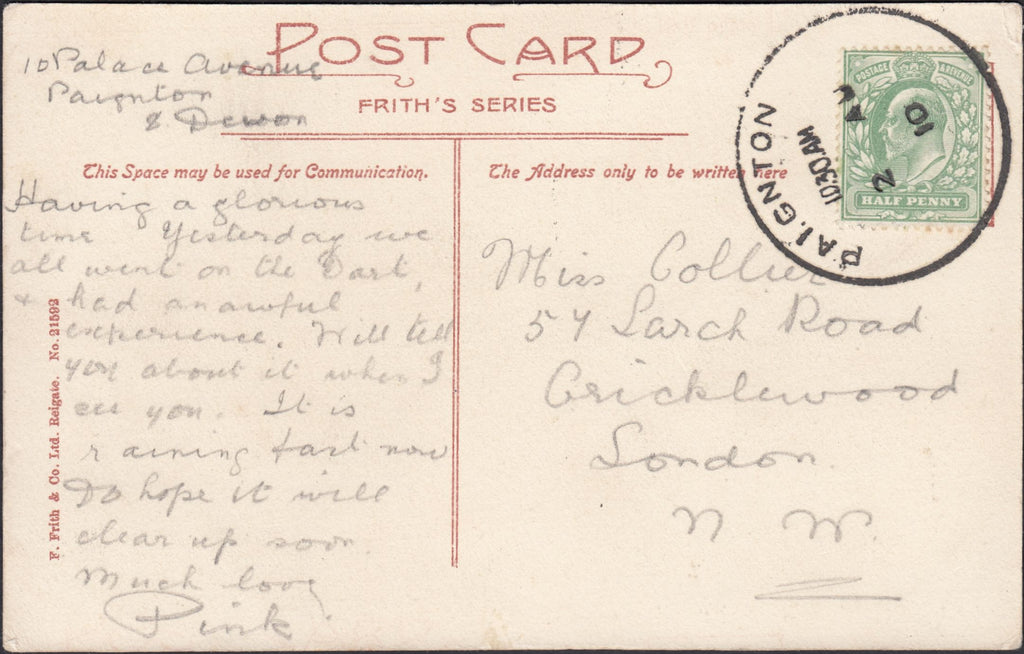 POST CARD
FRITH'S SERIES
10 Palace Avenue
Paignton
S Devon
This Space may be used for Communication.
Having a glorious
time Yesterday we
all went on the Dart,
+ had an awful
experience. Will tell
you about it when I
see you. It is
raining fast now
Do hope it will
clear up soon.
Much love
Pink
F. Frith & Co. Ltd. Reigate. No. 21592
The Address only to be written here
Miss Collier
54 Larch Road
Cricklewood
London.
N W.
PAIGNTON
10 30 AM
2
10
POSTAGE & REVENUE
HALF PENNY